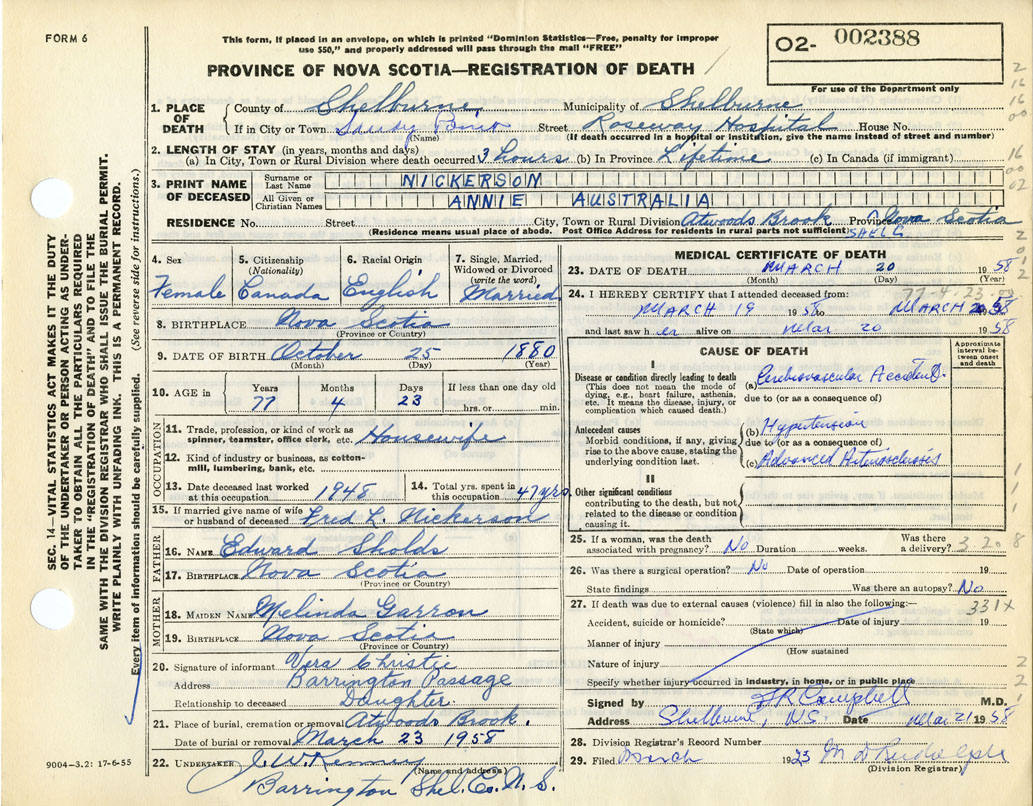 FORM 6
This form, if placed in an envelope, on which is printed "Dominion Statistics—Free, penalty for improper
use $50," and properly addressed will pass through the mail "FREE"
02- 002388
PROVINCE OF NOVA SCOTIA—REGISTRATION OF DEATH
For use of the Department only
SEC. 14—VITAL STATISTICS ACT MAKES IT THE DUTY
OF THE UNDERTAKER OR PERSON ACTING AS UNDER-
TAKER TO OBTAIN ALL THE PARTICULARS REQUIRED
IN THE "REGISTRATION OF DEATH" AND TO FILE THE
SAME WITH THE DIVISION REGISTRAR WHO SHALL ISSUE THE BURIAL PERMIT.
WRITE PLAINLY WITH UNFADING INK. THIS IS A PERMANENT RECORD.
Every item of information should be carefully supplied. (See reverse side for instructions.)
1. PLACE OF DEATH
County of Shelburne Municipality of Shelburne
If in City or Town Sandy Point Street Roseway Hospital House No.
(Name) (If death occurred in a hospital or institution, give the name instead of street and number)
2. LENGTH OF STAY (in years, months and days)
(a) In City, Town or Rural Division where death occurred 3 hours (b) In Province Lifetime (c) In Canada (if immigrant)
3. PRINT NAME OF DECEASED
Surname or Last Name NICKERSON
All Given or Christian Names ANNIE AUSTRALIA
RESIDENCE No. Street City, Town or Rural Division Atwoods Brook Province Nova Scotia
(Residence means usual place of abode. Post Office Address for residents in rural parts not sufficient) SHEL C
4. Sex Female
5. Citizenship (Nationality) Canada
6. Racial Origin English
7. Single, Married, Widowed or Divorced (write the word) Married
8. BIRTHPLACE Nova Scotia
(Province or Country)
9. DATE OF BIRTH October 25 1880
(Month) (Day) (Year)
10. AGE in Years 77 Months 4 Days 23 If less than one day old hrs. or min.
OCCUPATION
11. Trade, profession, or kind of work as spinner, teamster, office clerk, etc. Housewife
12. Kind of industry or business, as cotton-mill, lumbering, bank, etc.
13. Date deceased last worked at this occupation 1948
14. Total yrs. spent in this occupation 47 yrs.
15. If married give name of wife or husband of deceased Fred L. Nickerson
FATHER
16. NAME Edward Sholds
17. BIRTHPLACE Nova Scotia
(Province or Country)
MOTHER
18. MAIDEN NAME Melinda Garron
19. BIRTHPLACE Nova Scotia
(Province or Country)
20. Signature of informant Vera Christie
Address Barrington Passage
Relationship to deceased Daughter
21. Place of burial, cremation or removal Atwoods Brook.
Date of burial or removal March 23 1958
22. UNDERTAKER J. W. Kenney
(Name and address)
Barrington Shel. Co. N. S.
9004-3.2: 17-6-55
MEDICAL CERTIFICATE OF DEATH
23. DATE OF DEATH MARCH 20 1958
(Month) (Day) (Year)
77-4-23-09
24. I HEREBY CERTIFY that I attended deceased from:
MARCH 19 1958 to MARCH 20, 58
and last saw her alive on Mar 20 1958
CAUSE OF DEATH
Approximate interval between onset and death
I
Disease or condition directly leading to death
(This does not mean the mode of
dying, e.g., heart failure, asthenia,
etc. It means the disease, injury, or
complication which caused death.)
(a) Cerebrovascular Accident.
due to (or as a consequence of)
Antecedent causes
Morbid conditions, if any, giving
rise to the above cause, stating the
underlying condition last.
(b) Hypertension
due to (or as a consequence of)
(c) Advanced Arteriosclerosis
II
Other significant conditions
contributing to the death, but not
related to the disease or condition
causing it.
25. If a woman, was the death associated with pregnancy? No Duration weeks. Was there a delivery?
3 20 8
26. Was there a surgical operation? No Date of operation 19
State findings Was there an autopsy? No
27. If death was due to external causes (violence) fill in also the following:—
331X
Accident, suicide or homicide? Date of injury 19
(State which)
Manner of injury
(How sustained
Nature of injury
Specify whether injury occurred in industry, in home, or in public place
Signed by F R Campbell M.D.
Address Shelburne, N.S. Date Mar 21 1958
28. Division Registrar's Record Number
29. Filed March 1923
(Division Registrar)